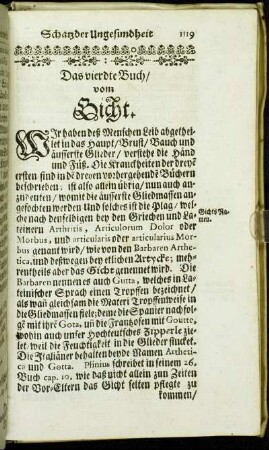 Schatz der Ungesundheit 1119
Das vierdte Buch/
vom
Gicht.
WIr haben des Menschen Leib abgethei-
let in das Haupt/ Brust/ Bauch und
äusserste Glieder/ verstehe die Händ
und Füß. Die Kranckheiten der dreyē
ersten sind in dē dreyen vorhergehendē Büchern
beschrieben: ist also allein übrig/ nun auch an-
zudeuten/ womit die äusserste Gliedmassen an-
gefochten werden. Und solches ist die Plag/ wel-
che nach denselbigen bey den Griechen und La-
teinern Arthritis, Articulorum Dolor oder
Morbus, und articularis oder articularius Mor-
bus genant wird/ wie von den Barbaren Arthe-
tica, und deswegen bey etlichen Artycke; meh-
rentheils aber das Gicht genennet wird. Die
Barbaren nennen es auch Gutta, welches in La-
teinischer Sprach einen Tropffen bezeichnet/
als wañ gleichsam die Materi Tropffenweise in
die Gliedmassen fiele; deme die Spanier nachfol-
gē mit ihre Gota, uñ die Frantzosen mit Goutte,
wohin auch unser Hochteutsches Zipperle zie-
let, weil die Feuchtigkeit in die Glieder sincket.
Die Italiäner behalten beyde Namen Artheti-
ca und Gotta. Plinius schreibet in seinem 26.
Buch cap. 10. wie daß nicht allein zu Zeiten
der Vor-Eltern das Gicht selten pflegte zu
kommen/
Gichts Na-
men.